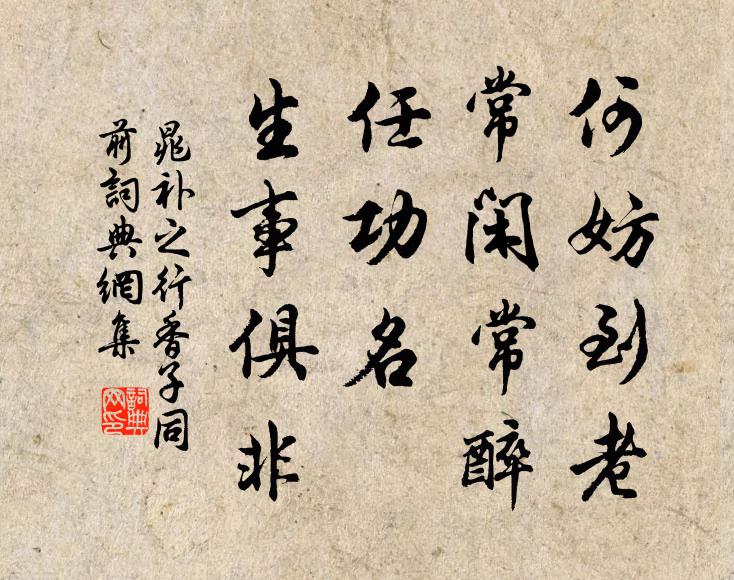 何妨到老
常闲常醉
任功名
生事俱非
晁补之行香子同
前詞典網集
詞典
网印